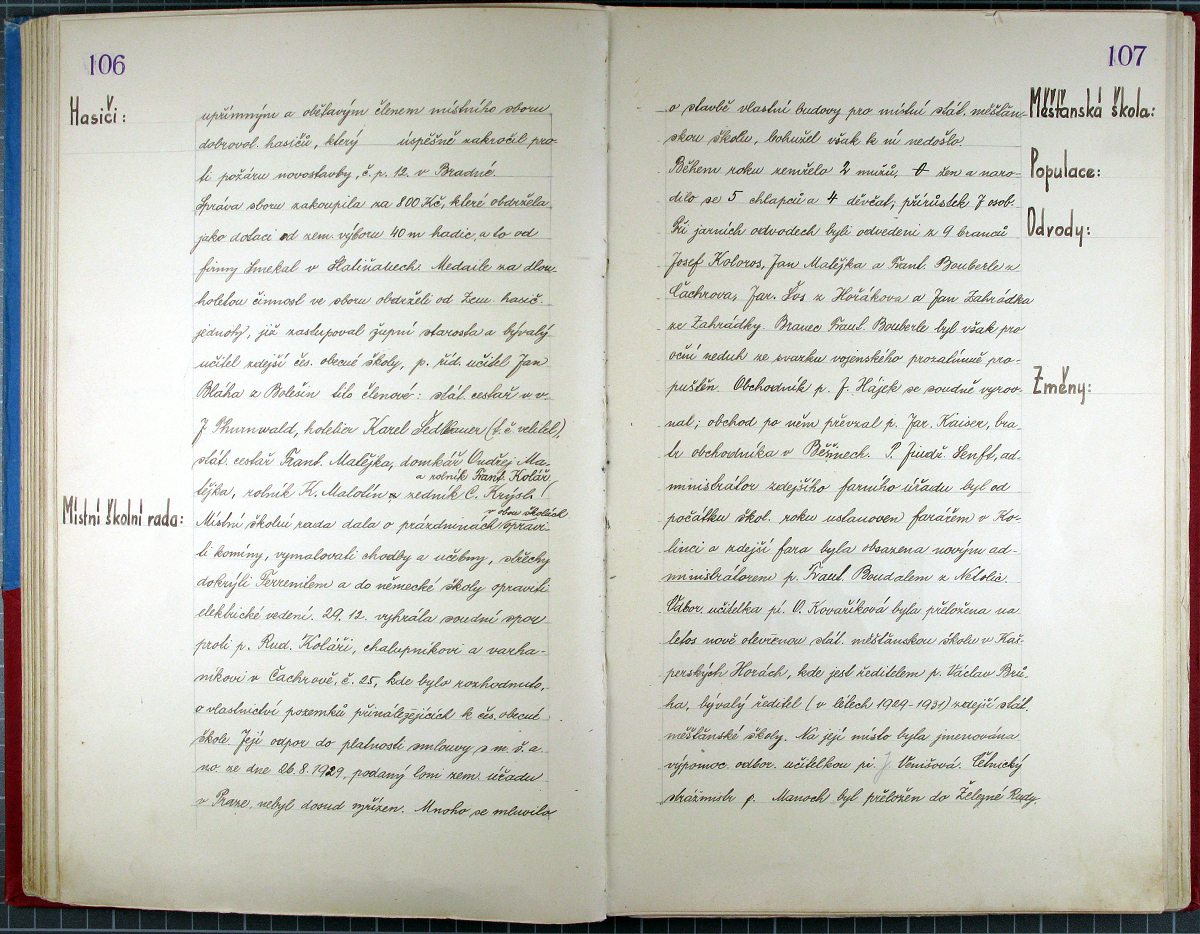 106
Hasiči:
upřímným a obětavým členem místního sboru
dobrovol. hasičů, který úspěšně zakročil pro-
ti požáru novostavby, č. p. 12. v Bradné.
Správa sboru zakoupila za 800 Kč, které obdržela
jako dotaci od zem. výboru 40 m hadic, a to od
firmy Smekal v Slatiňanech. Medaile za dlou-
holetou činnost ve sboru obdrželi od Zem. hasič.
jednoty, již zastupoval župní starosta a bývalý
učitel zdejší čes. obecné školy, p. říd. učitel Jan
Bláha z Bolešin tito členové: stát. cestář v. v.
J. Thurnwald, hotelier Karel Sedlbauer (t. č. velitel),
stát. cestář Frant. Matějka, domkář Ondřej Ma-
a rolník Frant. Kolář
tějka, rolník K. Malotín a zedník C. Krýsl.
Místní školní rada:
v obou školách
Místní školní rada dala o prázdninách opravi-
ti komíny, vymalovati chodby a učebny, střechy
dokrýti Terrenitem a do německé školy opraviti
elektrické vedení. 29. 12. vyhrála soudní spor
proti p. Rud. Koláři, chalupníkovi a varha-
níkovi v Čachrově, č. 25, kde bylo rozhodnuto,
o vlastnictví pozemků přináležejících k čes. obecné
škole. Její odpor do platnosti smlouvy s m. š. a
no. ze dne 26. 8. 1929, podaný loni zem. úřadu
v Praze, nebyl dosud vyřízen. Mnoho se mluvilo
107
Měšťanská škola:
o stavbě vlastní budovy pro místní stát. měšťan-
skou školu, bohužel však k ní nedošlo.
Populace:
Během roku zemřelo 2 mužů, 0 žen a naro-
dilo se 5 chlapců a 4 děvčat; přírůstek 7 osob.
Odvody:
Při jarních odvodech byli odvedeni z 9 branců
Josef Koloros, Jan Matějka a Frant. Bouberle z
Čachrova, Jar. Šos z Hořákova a Jan Zahrádka
ze Zahrádky. Branec Frant. Bouberle byl však pro
oční neduh ze svazku vojenského prozatímně pro-
Změny:
puštěn. Obchodník p. J. Hájek se soudně vyrov-
nal; obchod po něm převzal p. Jar. Kaiser, bra-
tr obchodníka v Běšinech. P. Jindř. Senft, ad-
ministrátor zdejšího farního úřadu byl od
počátku škol. roku ustanoven farářem v Ko-
linci a zdejší fara byla obsazena novým ad-
ministrátorem p. Frant. Boudalem z Netolic.
Odbor. učitelka pí. O. Kovaříková byla přeložena na
letos nově otevřenou stát. měšťanskou školu v Kaš-
perských Horách, kde jest ředitelem p. Václav Brů-
ha, bývalý ředitel (v létech 1929-1931) zdejší stát.
měšťanské školy. Na její místo byla jmenována
výpomoc. odbor. učitelkou pí. J. Venišová. Četnický
strážmistr p. Manoch byl přeložen do Železné Rudy,